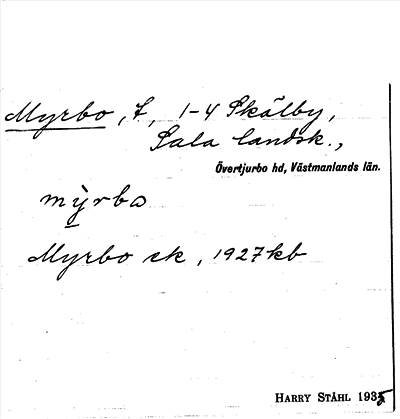 Myrbo, t, 1-4 Skälby,
Sala landsk.,
Övertjurbo hd, Västmanlands län.
mỳrbω
Myrbo ek, 1927 kb
HARRY STÅHL 1935